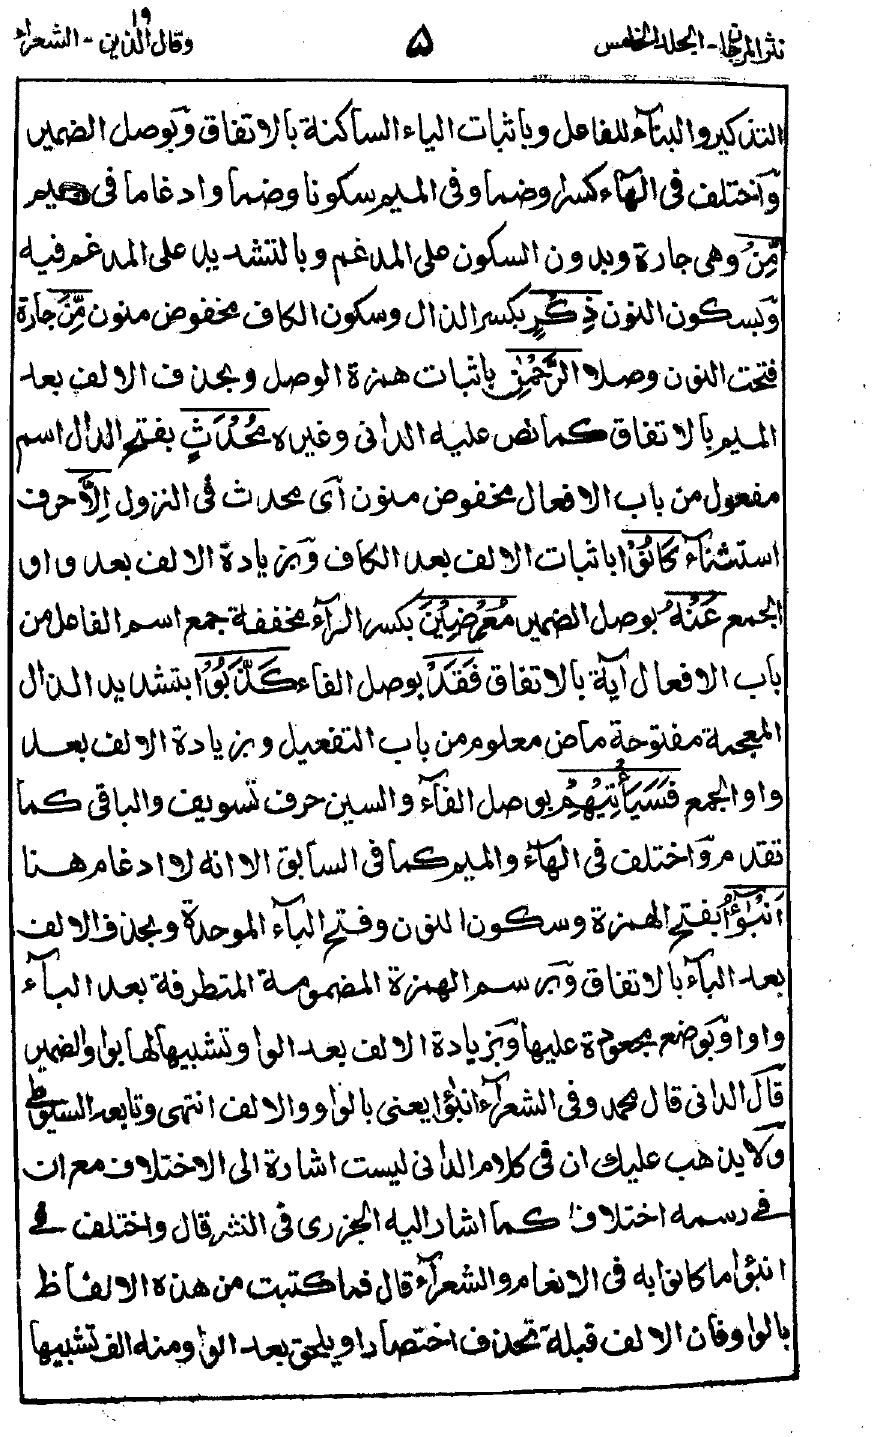 نثر المرجان - الجلد الخامس
۵
وقال الذين ١٩ - الشعراء
التذكير والبنآء للفاعل وباثبات الياء الساكنة بالاتفاق وَبوصل الضمير
وَآختلف في الهآء كسرا وضما وفي الميم سكونا وضما وادغاما في ميم
مِّنْ وهى جارة وبدون السكون على المدغم وبالتشديد على المدغم فيه
وَبسكون النون ذِكْرٍ بكسر الذال وسكون الكاف مخفوض منون مِّنَ جارة
فتحت النون وصلا الرَّحْمٰنِ باثبات همزة الوصل وبحذف الالف بعد
الميم بالاتفاق كما نص عليه الداني وغيره مُحْدَثٍ بفتح الدال اسم
مفعول من باب الافعال مخفوض منون آى محدث في النزول اِلَّا حرف
استثناء كَانُوْا باثبات الالف بعد الكاف وَبزيادة الالف بعد واو
الجمع عَنْهُ بوصل الضمير مُعْرِضِيْنَ بكسر الرآء مخففة جمع اسم الفاعل من
باب الافعال آية بالاتفاق فَقَدْ بوصل الفاء كَذَّبُوْا بتشديد الذال
المعجمة مفتوحة ماض معلوم من باب التفعيل وبزيادة الالف بعد
واو الجمع فَسَيَأْتِيْهِمْ بوصل الفآء والسين حرف تسويف والباقي كما
تقدم وَاختلف في الهآء والميم كما في السابق الا انه لا ادغام هنا
اَنْبٰٓؤُا بفتح الهمزة وسكون النون وفتح البآء الموحدة وبحذف الالف
بعد البآء بالاتفاق وَبرسم الهمزة المضمومة المتطرفة بعد البآء
واوا وَبوضع مجعودة عليها وَبزيادة الالف بعد الواو تشبيها لها بواو الضمير
قَالَ الداني قال محمد وفي الشعرآء انبٰؤا يعنى بالواو والالف انتهى وتابعه السيوطي
وَلا يذهب عليك ان في كلام الداني ليست اشارة الى الاختلاف مع ان
في رسمه اختلافا كما اشار اليه الجزرى في النشر قال واختلف في
انبٰؤا ما كانوا به في الانعام والشعرآء قال فما كتبت من هذه الالفاظ
بالواو فان الالف قبله تحذف اختصارا ويلحق بعد الواو منه الف تشبيها